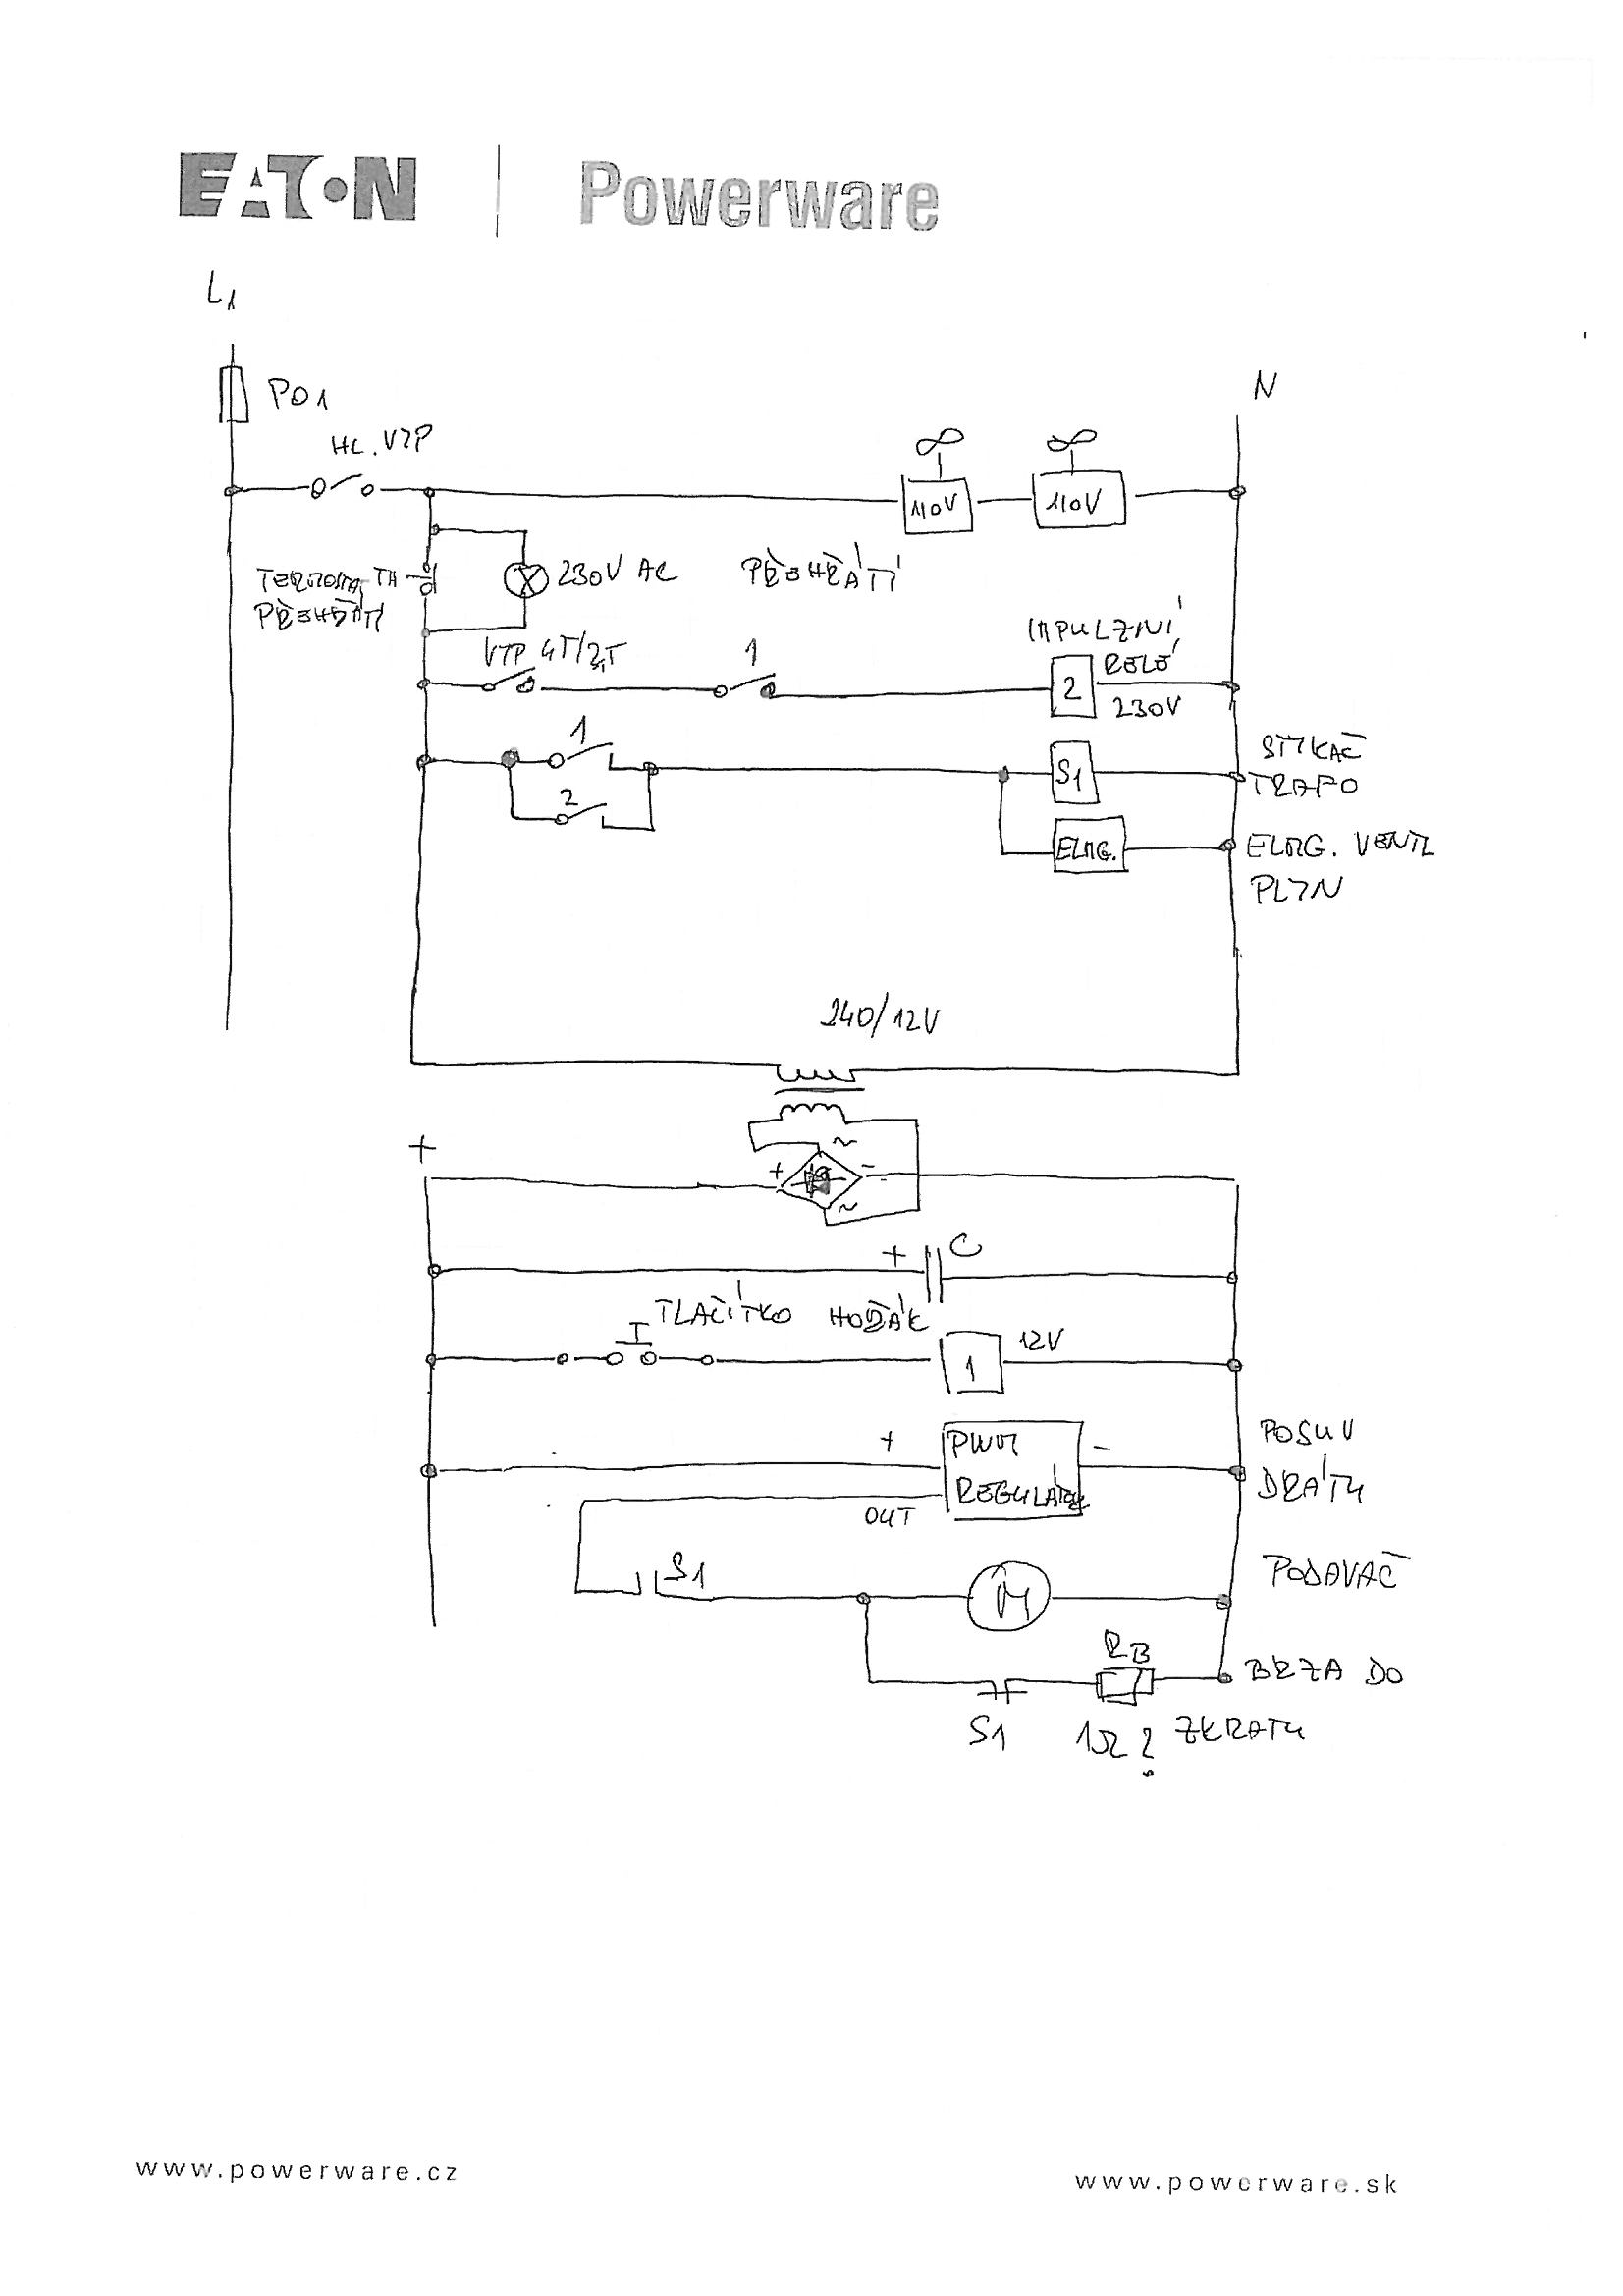 EATON | Powerware
L1
PO1
N
HL. VYP
110V
110V
TERMOSTAT TH
PŘEHŘÁTÍ
230V AC
PŘEHŘÁTÍ
VYP 4T/2T
1
IMPULZNÍ
RELÉ
2
230V
1
2
S1
STYKAČ
TRAFO
ELMG.
ELMG. VENTIL
PLYN
240/12V
+
~
+
-
~
+ C
TLAČÍTKO HOŘÁK
1
12V
+
PWM
REGULÁTOR
-
OUT
POSUV
DRÁTU
S1
M
PODAVAČ
RB
BRZDA DO
ZKRATU
S1
1Ω ?
www.powerware.cz
www.powerware.sk